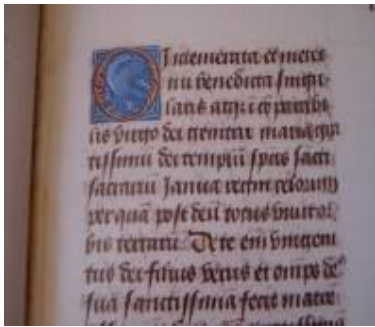 O Intemerata et in eter
nū benedicta singu
laris atqʒ īcōparabi
lis virgo dei genitrix maria gra
tissimū dei templū spūs sācti
sacrariū Ianua regni celorum
per quā post deū totus vivit or
bis terrarū De te enī vnigeni
tus dei filius verus et omīps deꝰ
suā sanctissimā fecit matrē